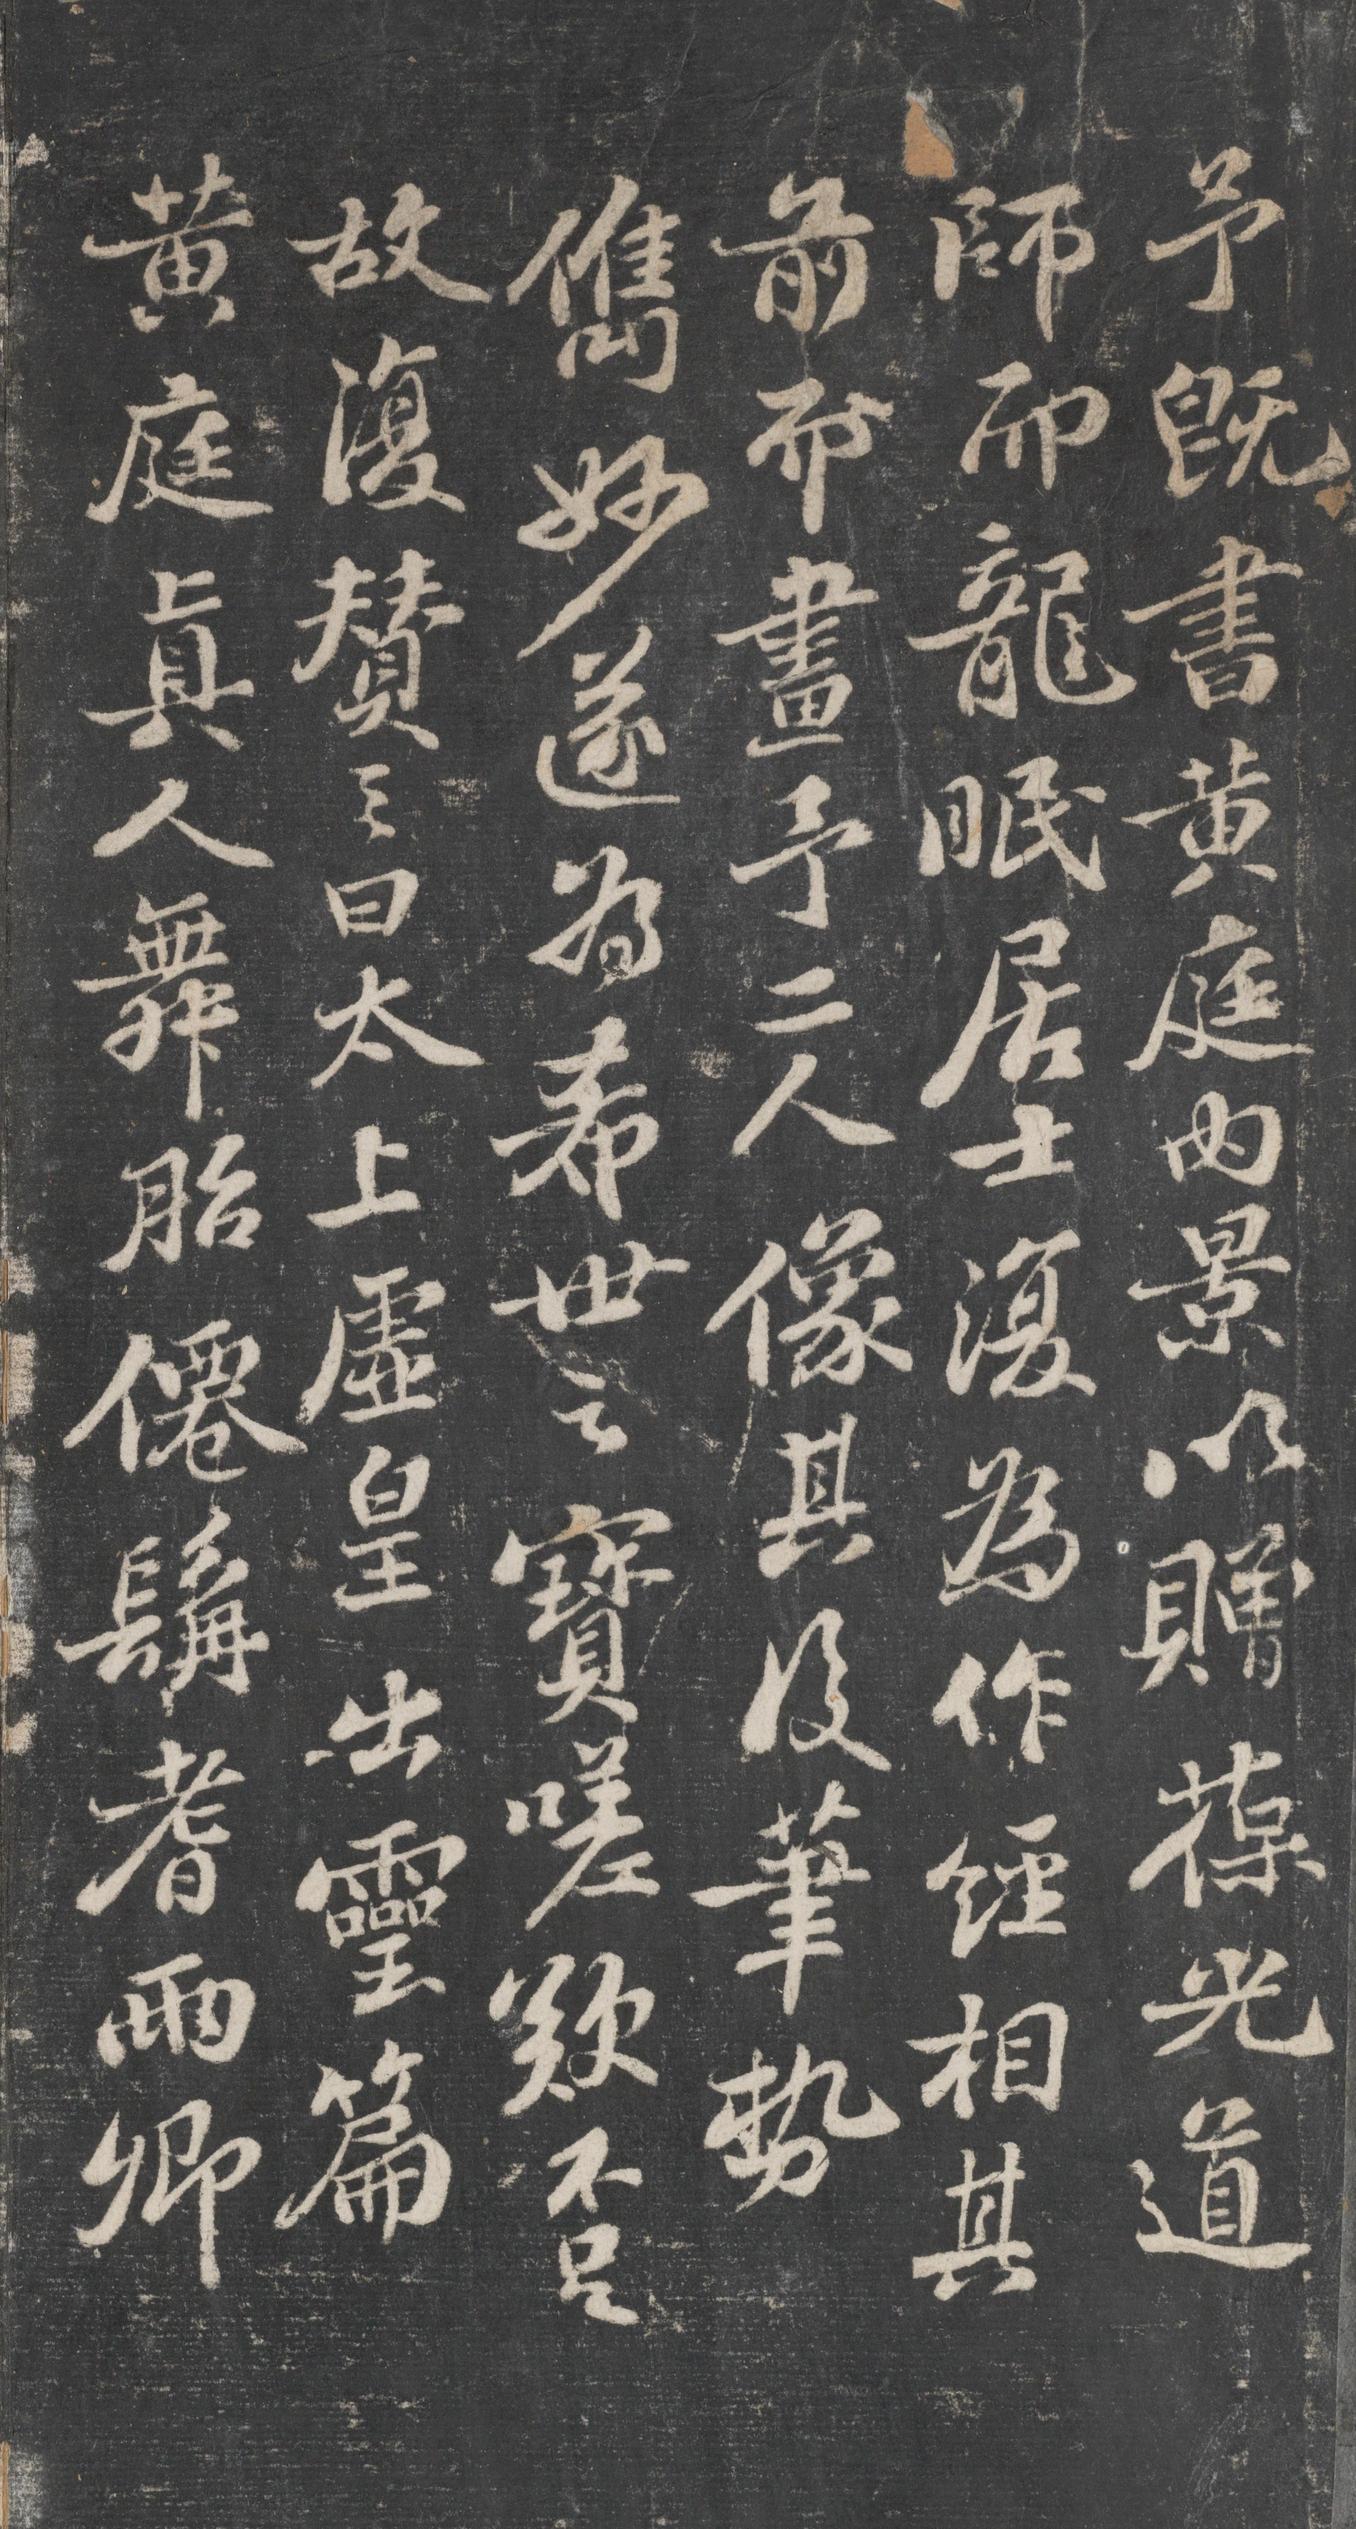 予既書黄庭内景以贈葆光道
師而龍眠居士復為作經相其
前而畫予二人像其後筆勢
儁妙遂為希世之寶嗟歎不足
故復贊之曰太上虛皇出靈篇
黄庭真人舞胎僊髯耆兩卿